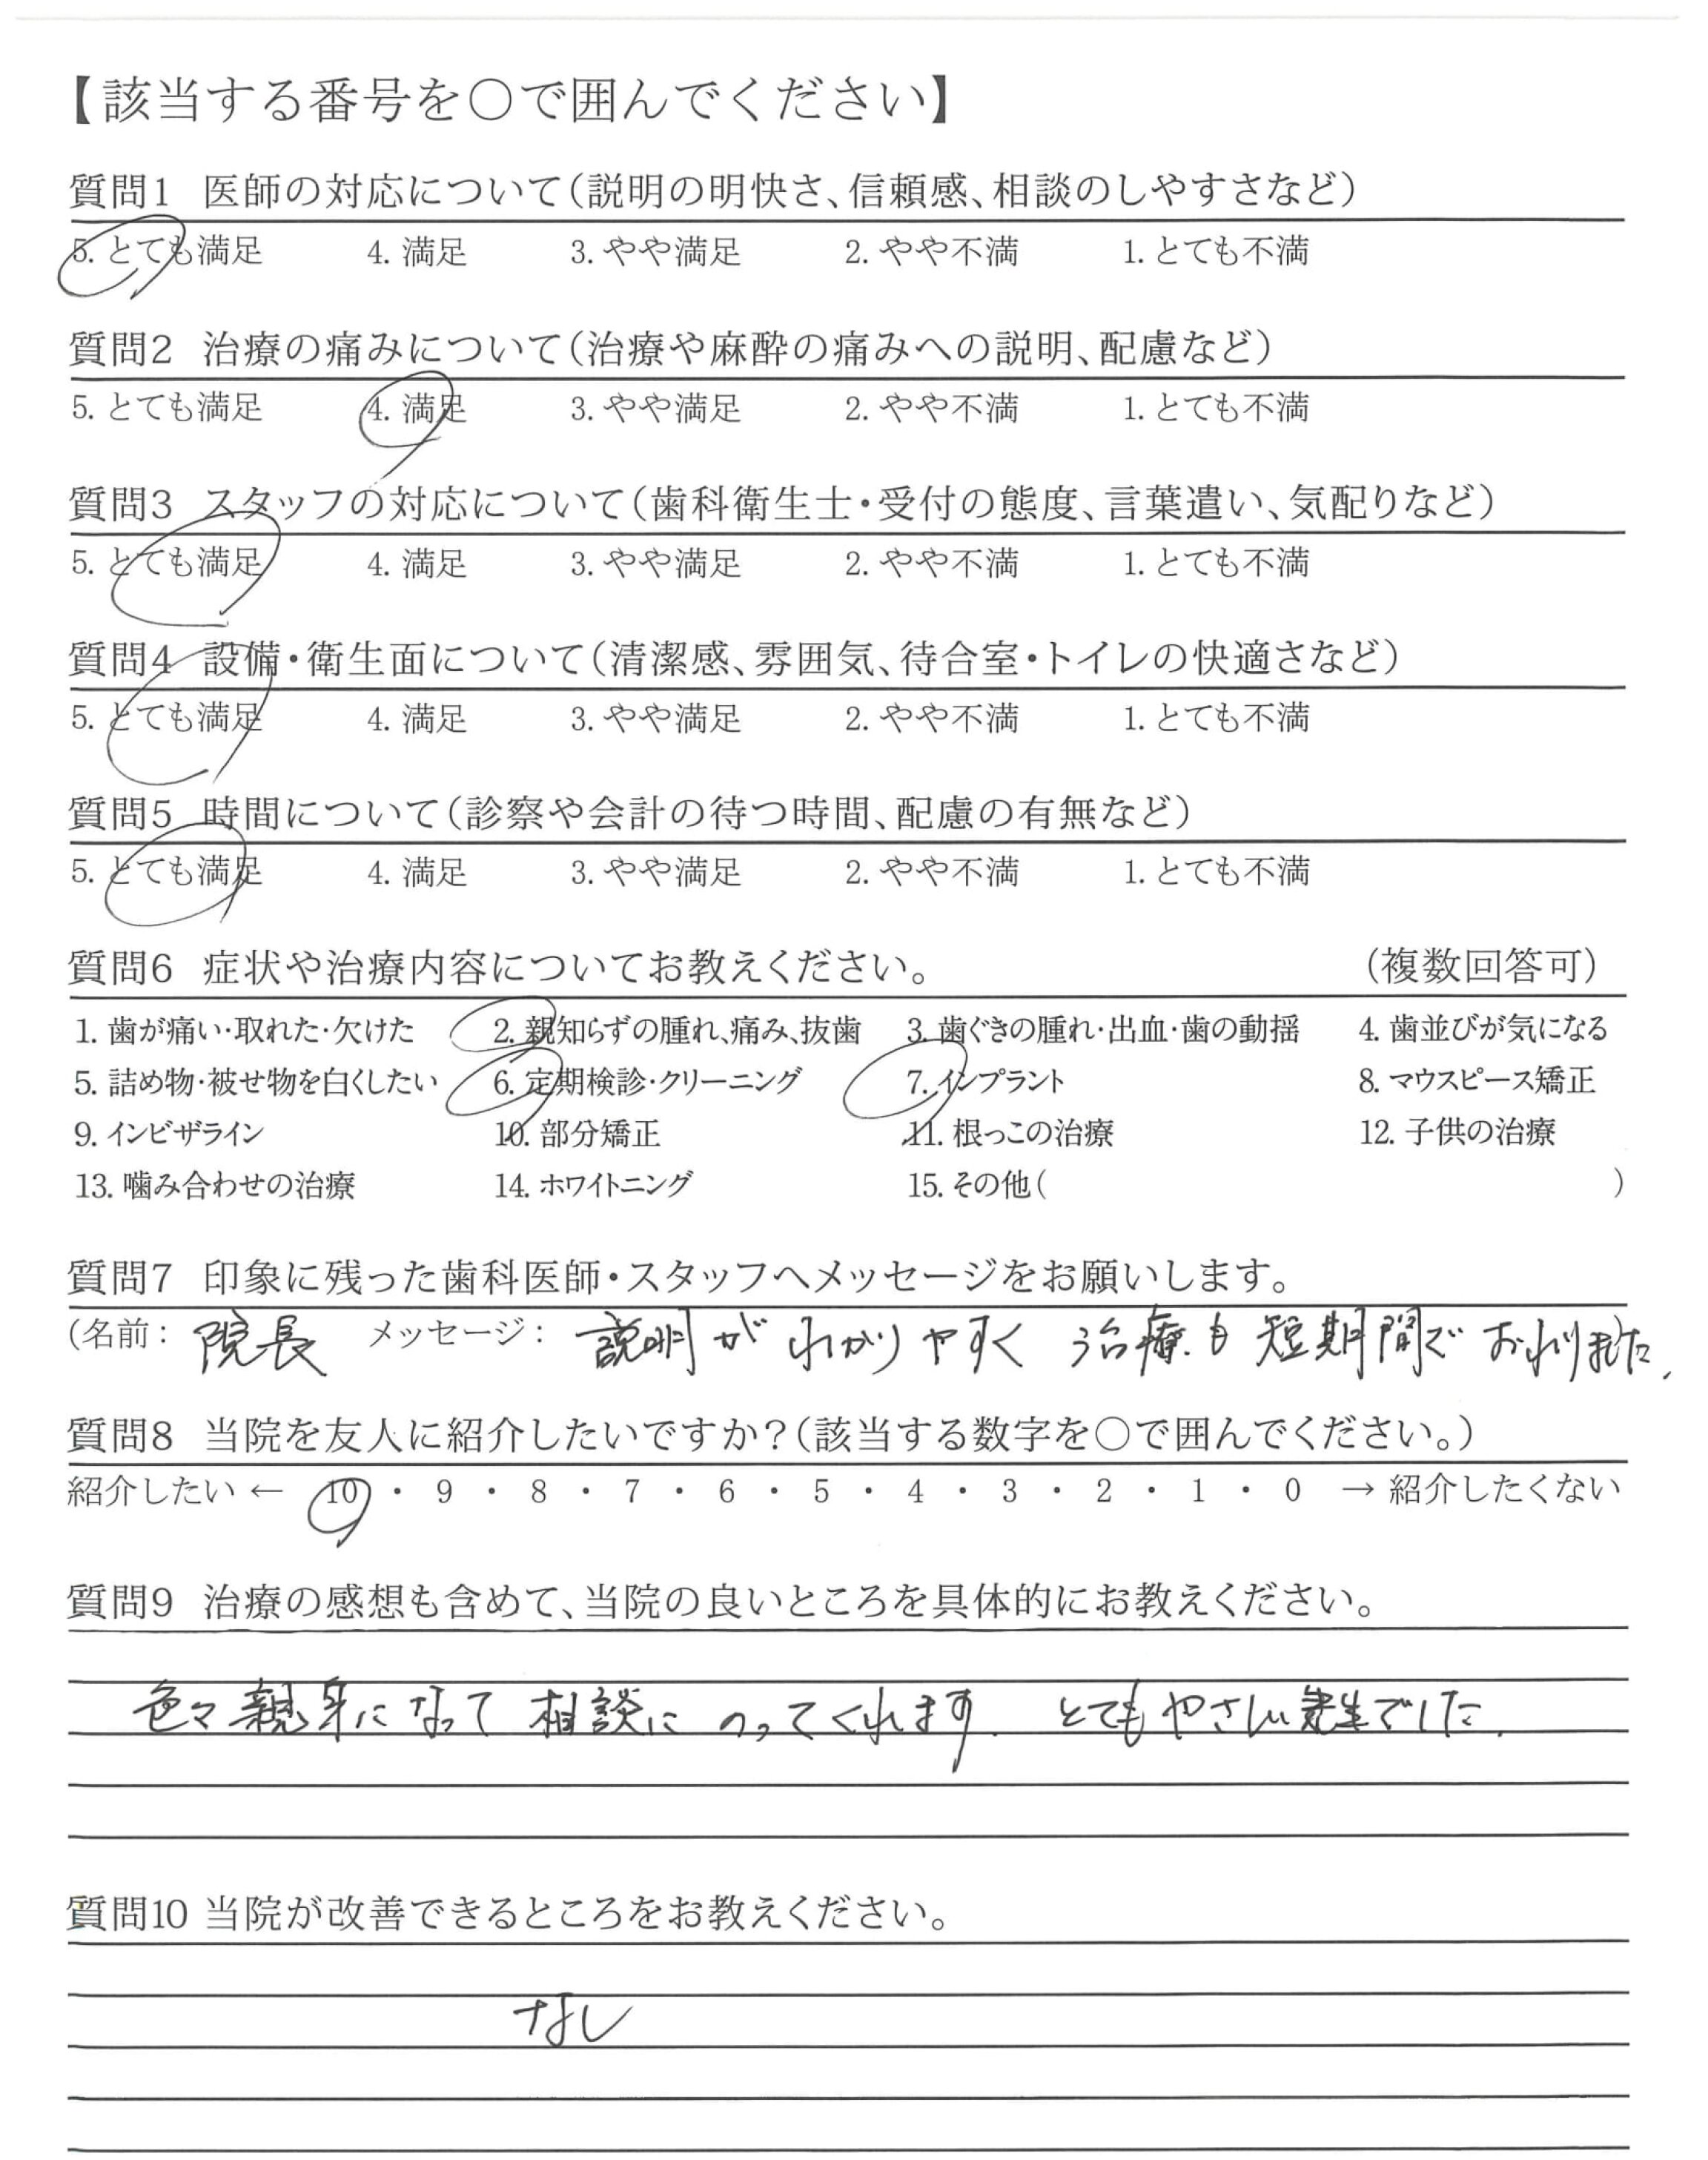 【該当する番号を〇で囲んでください】
質問1 医師の対応について（説明の明快さ、信頼感、相談のしやすさなど）
5. とても満足 4. 満足 3. やや満足 2. やや不満 1. とても不満
質問2 治療の痛みについて（治療や麻酔の痛みへの説明、配慮など）
5. とても満足 4. 満足 3. やや満足 2. やや不満 1. とても不満
質問3 スタッフの対応について（歯科衛生士・受付の態度、言葉遣い、気配りなど）
5. とても満足 4. 満足 3. やや満足 2. やや不満 1. とても不満
質問4 設備・衛生面について（清潔感、雰囲気、待合室・トイレの快適さなど）
5. とても満足 4. 満足 3. やや満足 2. やや不満 1. とても不満
質問5 時間について（診察や会計の待つ時間、配慮の有無など）
5. とても満足 4. 満足 3. やや満足 2. やや不満 1. とても不満
質問6 症状や治療内容についてお教えください。 （複数回答可）
1. 歯が痛い・取れた・欠けた 2. 親知らずの腫れ、痛み、抜歯 3. 歯ぐきの腫れ・出血・歯の動揺 4. 歯並びが気になる
5. 詰め物・被せ物を白くしたい 6. 定期検診・クリーニング 7. インプラント 8. マウスピース矯正
9. インビザライン 10. 部分矯正 11. 根っこの治療 12. 子供の治療
13. 噛み合わせの治療 14. ホワイトニング 15. その他（ ）
質問7 印象に残った歯科医師・スタッフへメッセージをお願いします。
（名前： 院長 メッセージ： 説明がわかりやすく 治療も短期間でおわりました.
質問8 当院を友人に紹介したいですか？（該当する数字を〇で囲んでください。）
紹介したい ← 10 ・ 9 ・ 8 ・ 7 ・ 6 ・ 5 ・ 4 ・ 3 ・ 2 ・ 1 ・ 0 → 紹介したくない
質問9 治療の感想も含めて、当院の良いところを具体的にお教えください。
色々親身になって相談にのってくれます. とてもやさしい先生でした.
質問10 当院が改善できるところをお教えください。
なし